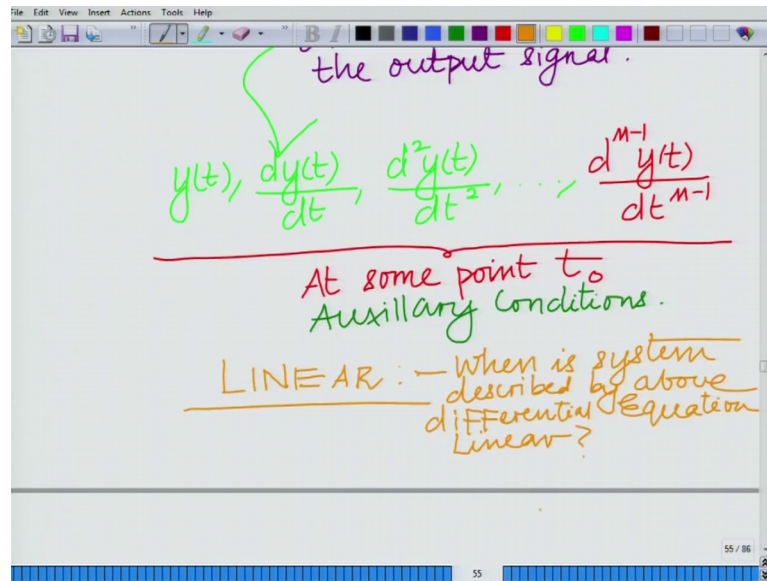 File Edit View Insert Actions Tools Help
B I
the output signal.
y(t), dy(t)/dt, d²y(t)/dt², ..., d^{M-1}y(t)/dt^{M-1}
At some point t₀
Auxillary Conditions.
LINEAR :- When is system
described by above
differential Equation
Linear?
55 / 86
55